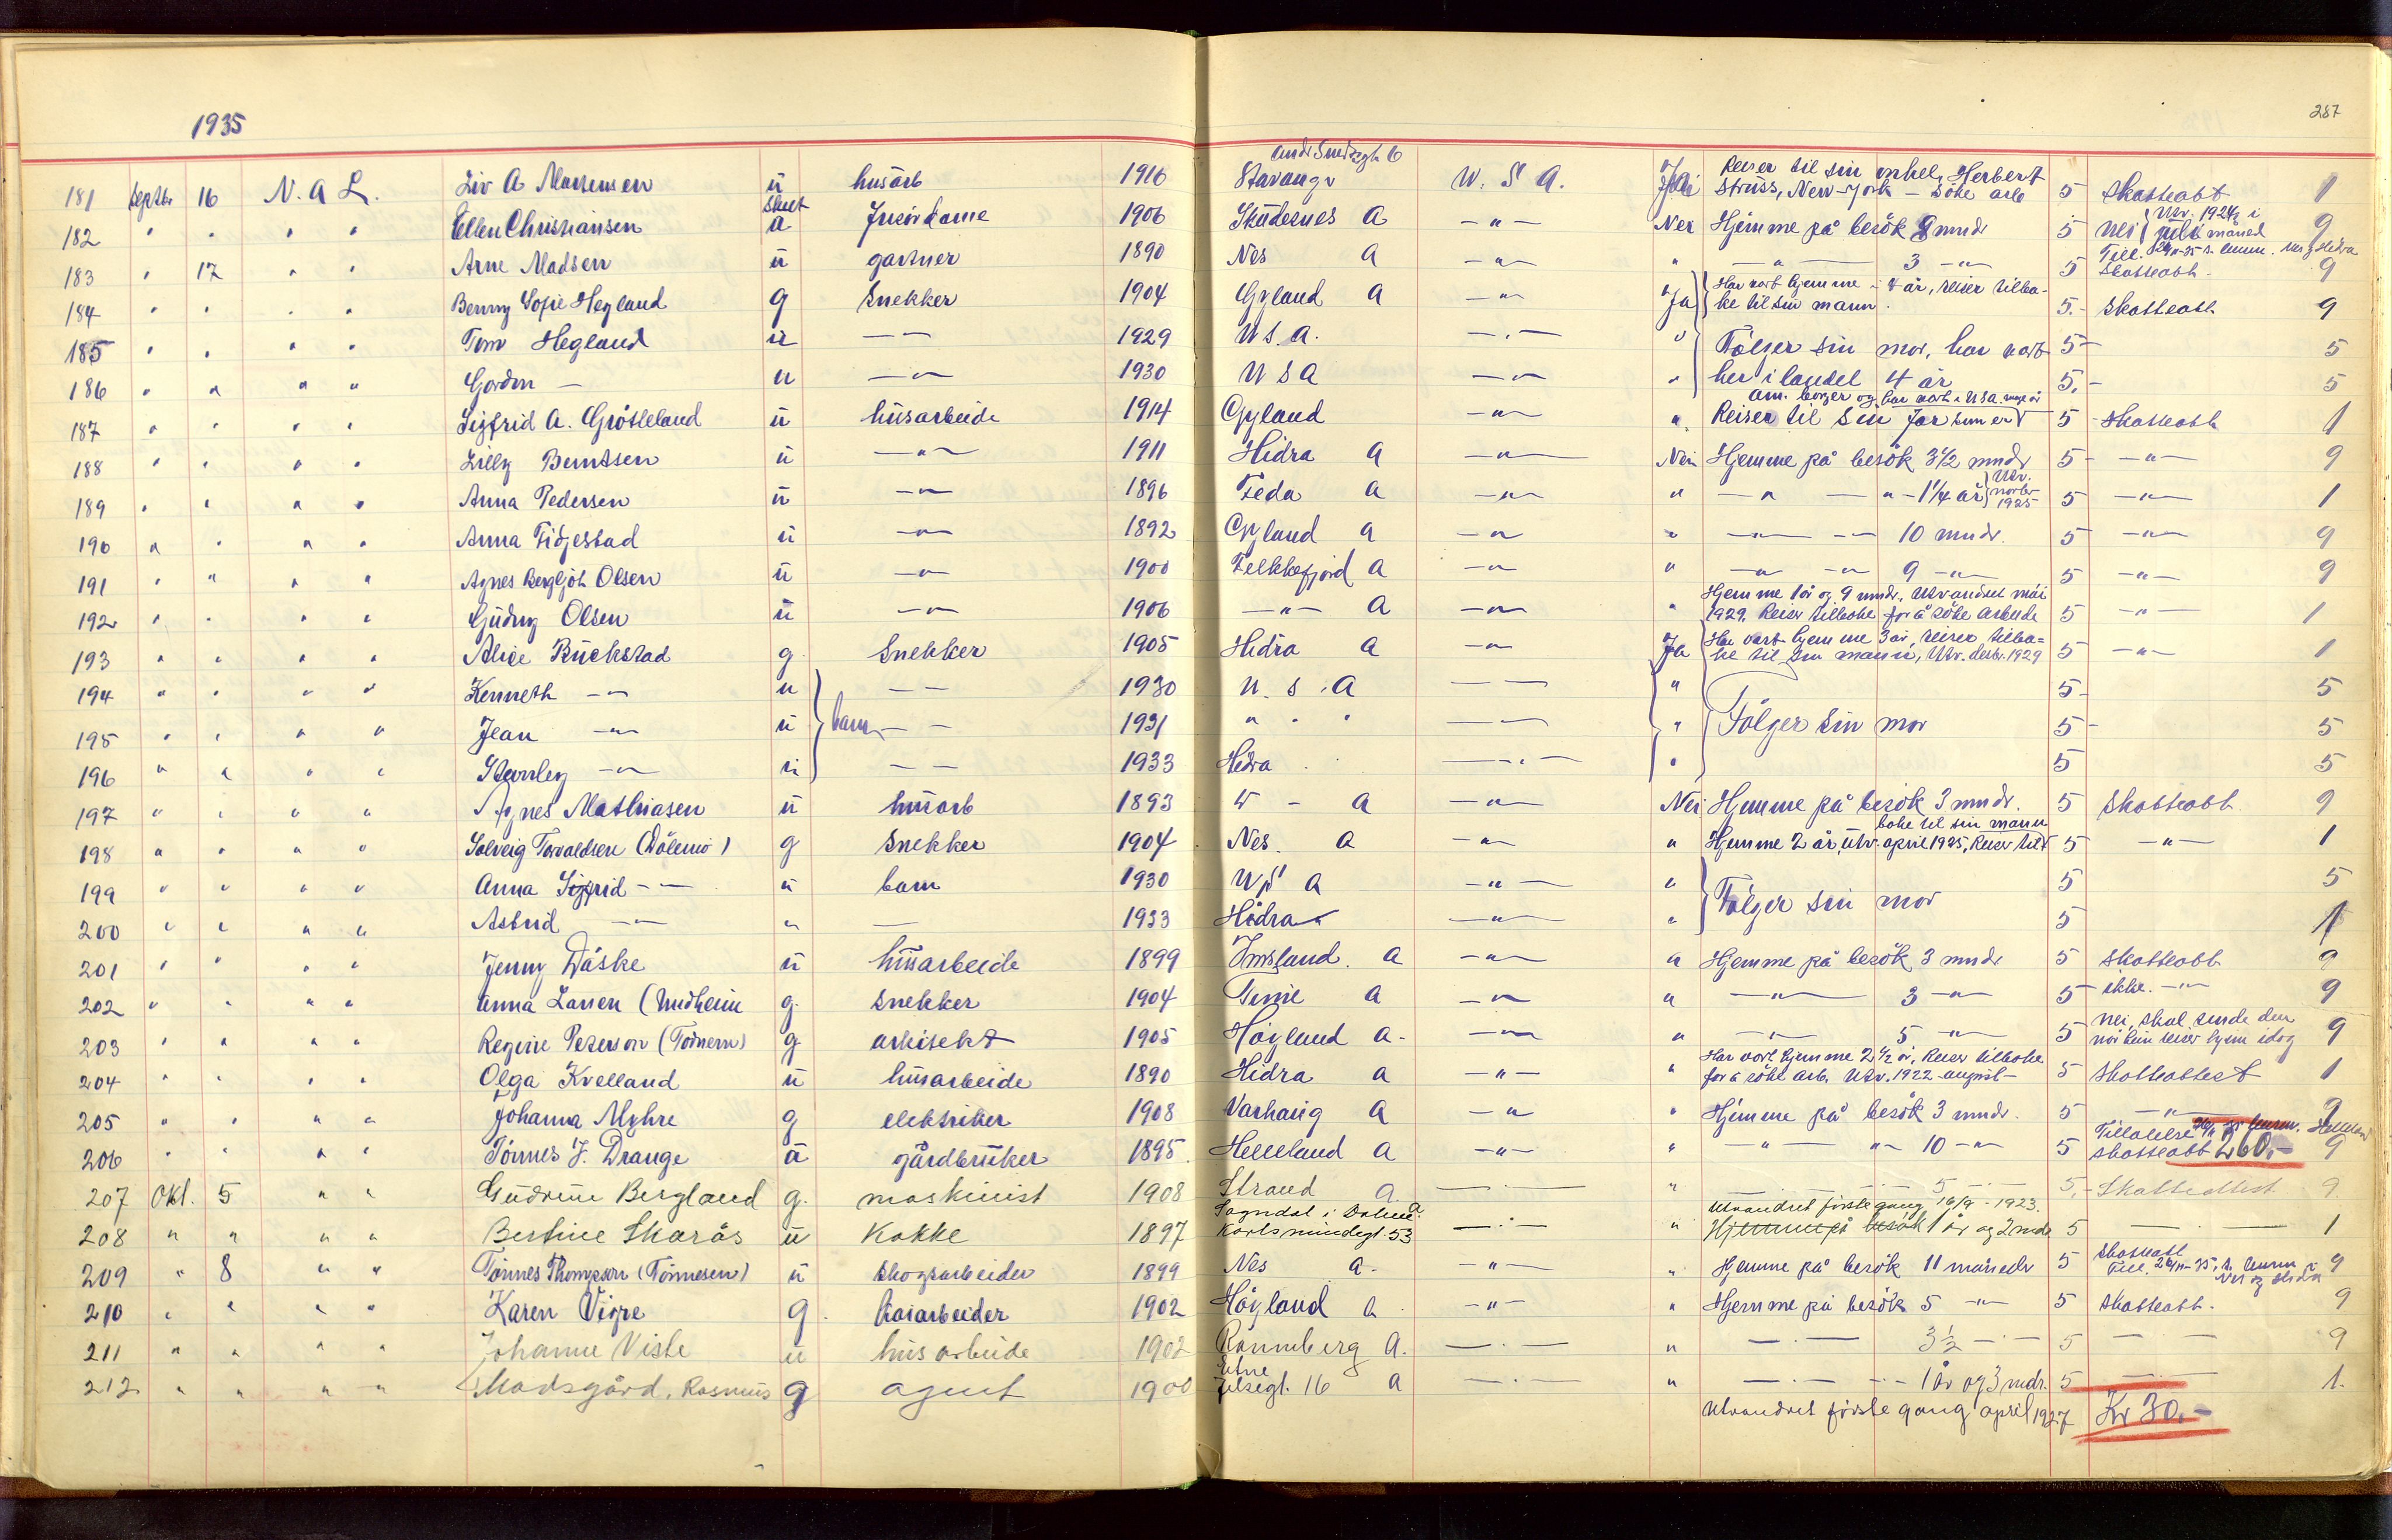 287
1935
181 Septbr 16 N. A L. Liv A Martensen u husarb 1916 Stavanger U. S A. Ja Reiser til sin onkel, Herbert Struss, New-York – söke arb 5 skatteatt 1
182 " " " " Ellen Christiansen u Frisördame 1906 Skudesnes A —"— Nei Hjemme på besök 8 mndr 5 nei Utv. 1924 i juli måned 9
183 " 17 " " Arne Madsen u gartner 1890 Nes A —"— " —"— 3 —"— 5 skatteatt. 9
184 " " " " Benny Sofie Hegland g Snekker 1904 Gyland A —"— Ja Har vært hjemme i 4 år, reiser tilba-
ke til sin mann. 5.- skatteatt 9
185 " " " " Tom Hegland u —— 1929 U S. A. —"— " Fölger sin mor, har vært 5- 5
186 " " " " Gordon — u —"— 1930 U S A —"— " her i landet 4 år 5,- 5
187 " " " " Sigfrid A. Grötteland u husarbeide 1914 Gyland —"— " am. borger og har vært i USA mge år
Reiser til sin far som er 5 - skatteatt 1
188 " " " " Lilly Berntsen u —"— 1911 Hidra A —"— Nei Hjemme på besök 3 1/2 mndr 5 - —"— 9
189 " " " " Anna Pedersen u —"— 1896 Feda A —"— " —"— —"— 1 1/4 år Utv. novbr 1925 5 —"— 1
190 " " " " Anna Fidjestad u —"— 1892 Gyland A —"— " —"— —"— 10 mndr. 5 —"— 9
191 " " " " Agnes Bergljot Olsen u —"— 1900 Flekkefjord A —"— " —"— —"— 9 —"— 5 —"— 9
192 " " " " Gudny Olsen u —"— 1906 —"— A —"— " Hjemme 1 år og 9 mndr. Utvandret mai
1929. Reiser tilbake for å söke arbeide 5 —"— 1
193 " " " " Alice Buckstad g. Snekker 1905 Hidra A —"— Ja Har vært hjemme 3 år, reiser tilba=
ke til sin mann, Utv. desbr. 1929 5 —"— 1
194 " " " " Kenneth —"— u —— 1930 U. S. A —— " 5- 5
195 " " " " Jean —"— u barn —— 1931 " " " —— " Fölger sin mor 5- 5
196 " " " " Stanley —"— u —— 1933 Hidra —"— " 5 5
197 " " " " Agnes Mathiasen u husarb 1893 " - A —"— Nei Hjemme på besök 3 mndr. 5 Skatteatt 9
198 " " " " Solveig Torvaldsen (Dölemo) g Snekker 1904 Nes. A —"— " Hjemme 2 år, utv. april 1925, Reiser til-
bake til sin mann 5 —"— 1
199 " " " " Anna Sigfrid —— u barn 1930 U S A —"— " 5 5
200 " " " " Astrid —"— " — 1933 Hidra —"— " Fölger sin mor 5 1
201 " " " " Jenny Våske u husarbeide 1899 Imsland. A —"— " Hjemme på besök 3 mndr 5 skatteatt 9
202 " " " " Anna Larsen (Undheim g. snekker 1904 Time A —"— " —"— 3 —"— 5 ikke. —"— 9
203 " " " " Regine Peterson ( g arkitekt 1905 Höyland A - —"— " —"— 5 —"— 5 Nei, skal sende den
når hun reiser hjem idag 9
204 " " " " Olga Kvelland u husarbeide 1890 Hidra A —"— " Har vært hjemme 2 1/2 år, Reiser tilbake
for å söke arb. Utv. 1922 august – 5 Skatteattest 1
205 " " " " Johanna Myhre g elektriker 1908 Varhaug A —"— " Hjemme på besök 3 mndr. 5 —"— 9
206 " " " " Tönnes J. Drange u gårdbruker 1895 Helleland A —"— " —"— "— 10 —"— 5 Tillatelse
skatteatt 260,- 9
207 Okt. 5 " " Gudrun Bergland g. maskinist 1908 Strand A. —.— " —.— 5 —.— 5,- Skatteattest 9
208 " " " " Bertine Skarås u Kokke 1897 Sogndal i Dalene
Karlsmindegt. 53 —.— " Utvandret förste gang 16/9 - 1923.
Hjemme på besök 1 år og 2 mndr 5 —.— 1
209 " 8 " " Tönnes Thompson (Tönnesen) u skogsarbeider 1899 Nes A - —"— " Hjemme på besök 11 måneder 5 skatteatt 9
210 " " " " Karen Vigre g. 1902 Höyland A. —"— " Hjemme på besök 5 —"— 5 Skatteatt. 9
211 " " " " Johanne Viste u husarbeide 1902 Randaberg A. —.— " —.— 3 1/2 —.— 5 —.— 9
212 " " " " Madsgård, Rasmus g agent 1900 Etne
gt. 16 A —.— " —.— 1 år og 3 mdr. 5 —.— 1.
Utvandret förste gang april 1927 Kr 30.-